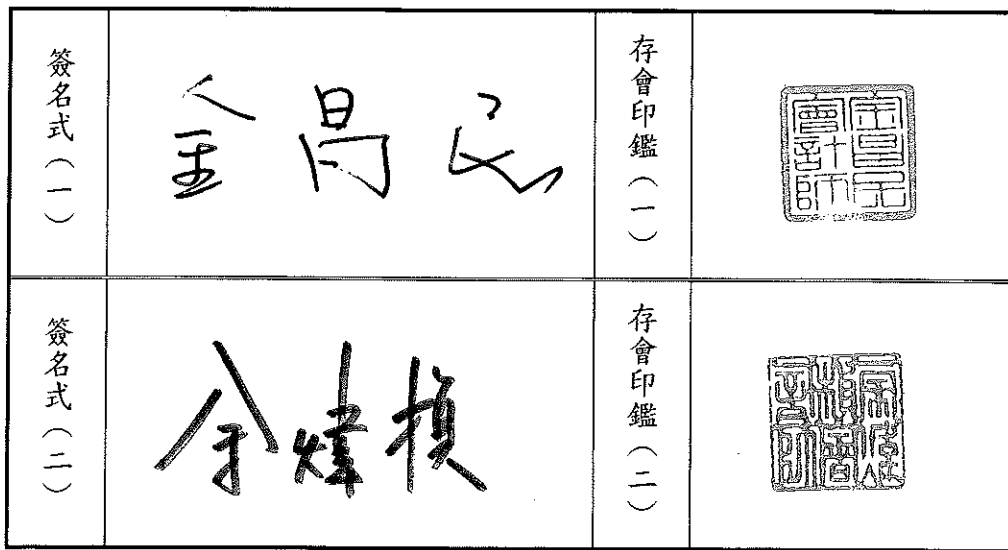 簽名式（一）
金昌民
存會印鑑（一）
金昌民
會計師
簽名式（二）
余煒楨
存會印鑑（二）